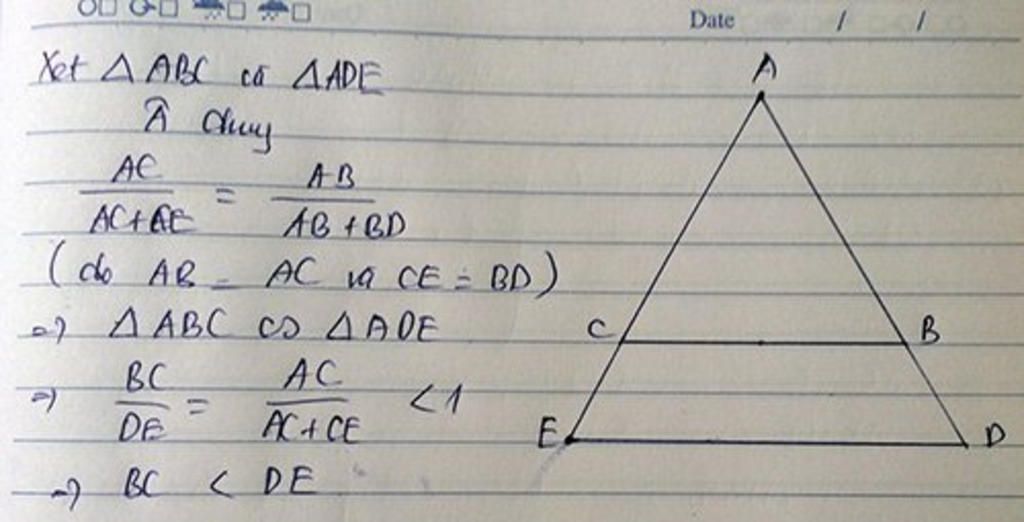 Date / /
Xet △ ABC có △ADE
Â chung
AC / AC+CE = AB / AB+BD
(do AB = AC và CE = BD)
=) △ ABC ∽ △ ADE
=) BC / DE = AC / AC+CE < 1
=) BC < DE
A
C
B
E
D